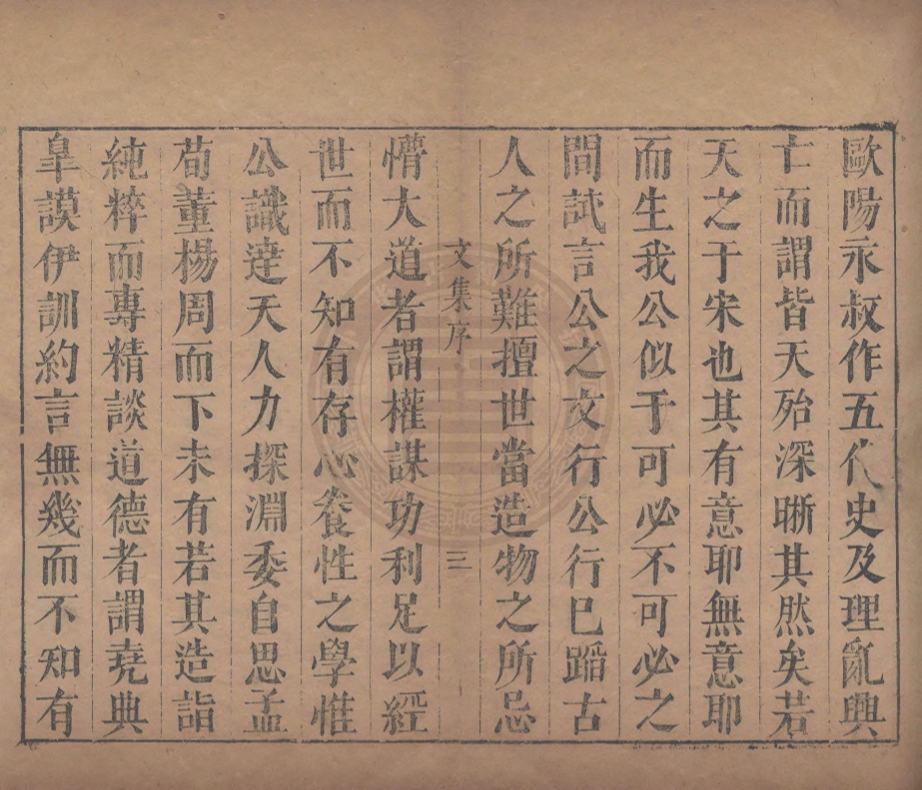 歐陽永叔作五代史及理亂興
亡而謂皆天殆深晰其然矣若
天之于宋也其有意耶無意耶
而生我公似于可必不可必之
間試言公之文行公行已蹈古
人之所難擅世當造物之所忌
文集序
三
懵大道者謂權謀功利足以經
世而不知有存心養性之學惟
公識達天人力探淵委自思孟
荀董楊周而下未有若其造詣
純粹而專精談道德者謂堯典
皐謨伊訓約言無幾而不知有